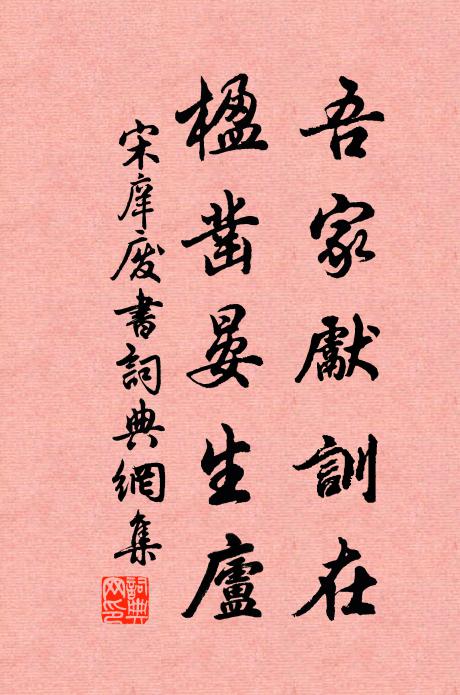 吾家獻訓在
楹鑿晏生廬
宋庠废書詞典網集
詞典網印